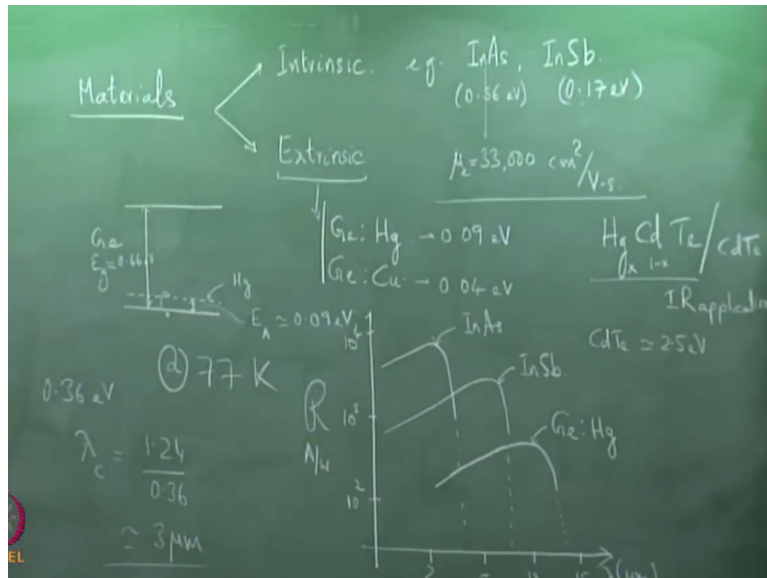 Materials
Intrinsic. e.g. InAs, InSb.
(0.36 eV) (0.17 eV)
Extrinsic
μe = 33,000 cm²/V-s.
Ge:Hg → 0.09 eV
Ge:Cu → 0.04 eV
HgxCd1-xTe/CdTe
IR
CdTe ≃ 2.5 eV
Ge
Eg = 0.66
Hg
EA ≃ 0.09 eV
@ 77 K
0.36 eV
λc = 1.24
0.36
≃ 3 μm
R
A/W
10⁴
10³
10²
InAs
InSb
Ge:Hg
EL